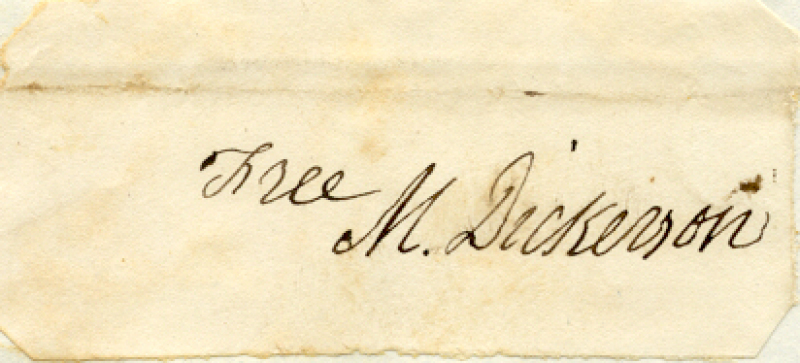 Free
M. Dickerson